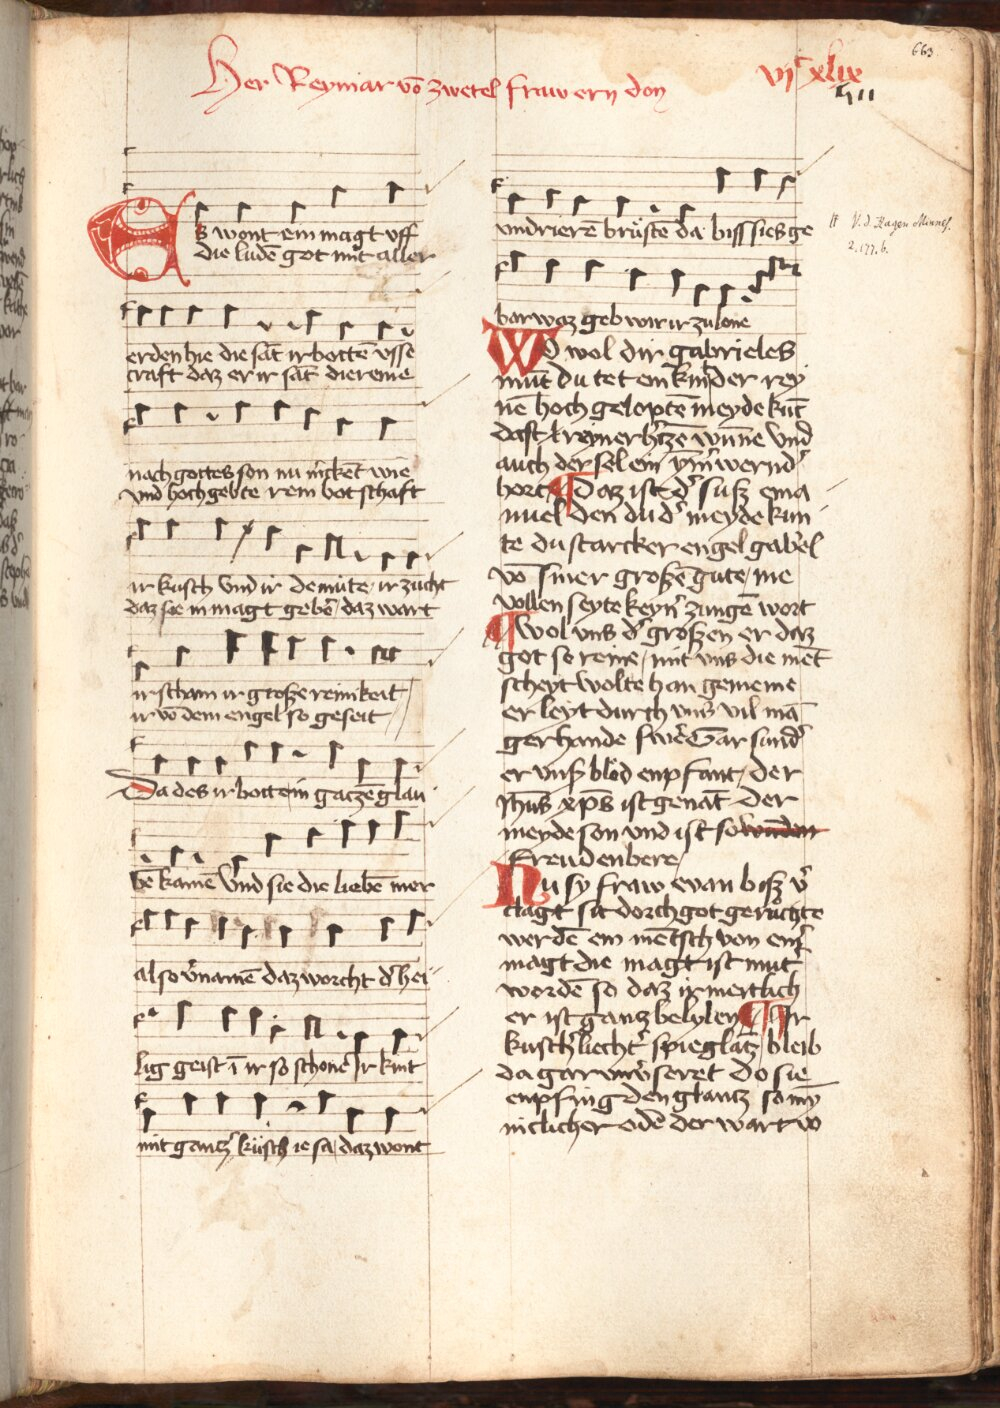 Her Reymar vō zwetel fraw ern don
vjᶜ xlix
663
Es wont ein magt vff
die ludē got mit aller
erden hie die sāt ir bottē vsse
craft daz er ir sāt die reine
nach gottes son nu m̄ckēt wie
vnd hochgebte rein botschaft
ir kusch vnd ir demūte / ir zucht
daz sie in magt gebē / daz wart
ir scham ir große reinikeit
ir vō dem engel so geseit
Da des ir botte in gatzē glau
bē kamē vnd sie die liebē mer
also v̄namē daz worcht d̓ hei
lig geist ī ir so schone Ir kint
mit gantz̓ kúsch ie sa / daz wont
vnd rierē brústē da biss sies ge
bar waz geb wir ir zu lone
H V. d. Hagen Minnes.
2. 177. b.
Wo wol dir gabrieles
mūt du tet ein kint der rey
nē hoch geloptē meyde kūt
dast reyner h̓tzē wūne vnd
auch der sel ein ym̄ wernd̓
hort ¶ Daz ist d̓ suß ema
nuel den du d̓ meyde kun
te du starcker engel gab̓el
vō siner großē gute / nie
vollen seyte keyn̓ zungē wort
¶ Wol vns d̓ großen er daz
got so reine / mit vns die mēt
scheyt wolte han gemeine
er leyt durch vns vil mā
gerhande swe̓ Gar sund̓
er vnß blöd enpfant / der
jh̄us xp̄s ist genāt der
meyde son vnd ist so
freuden bere /
Nu sy fraw evan biß v̓
clagt sit dorch got geruchte
werdē ein mētsch von ein̓
magt die magt ist mut̓
wordē so daz ir mertlich
er ist gantz belyben ¶ Ir
kusch̓ liecht̓ spieglatz / bleib
da gar vnv̓seret do sie
enpfing den glantz so my̅
niclicher odē der wart vō